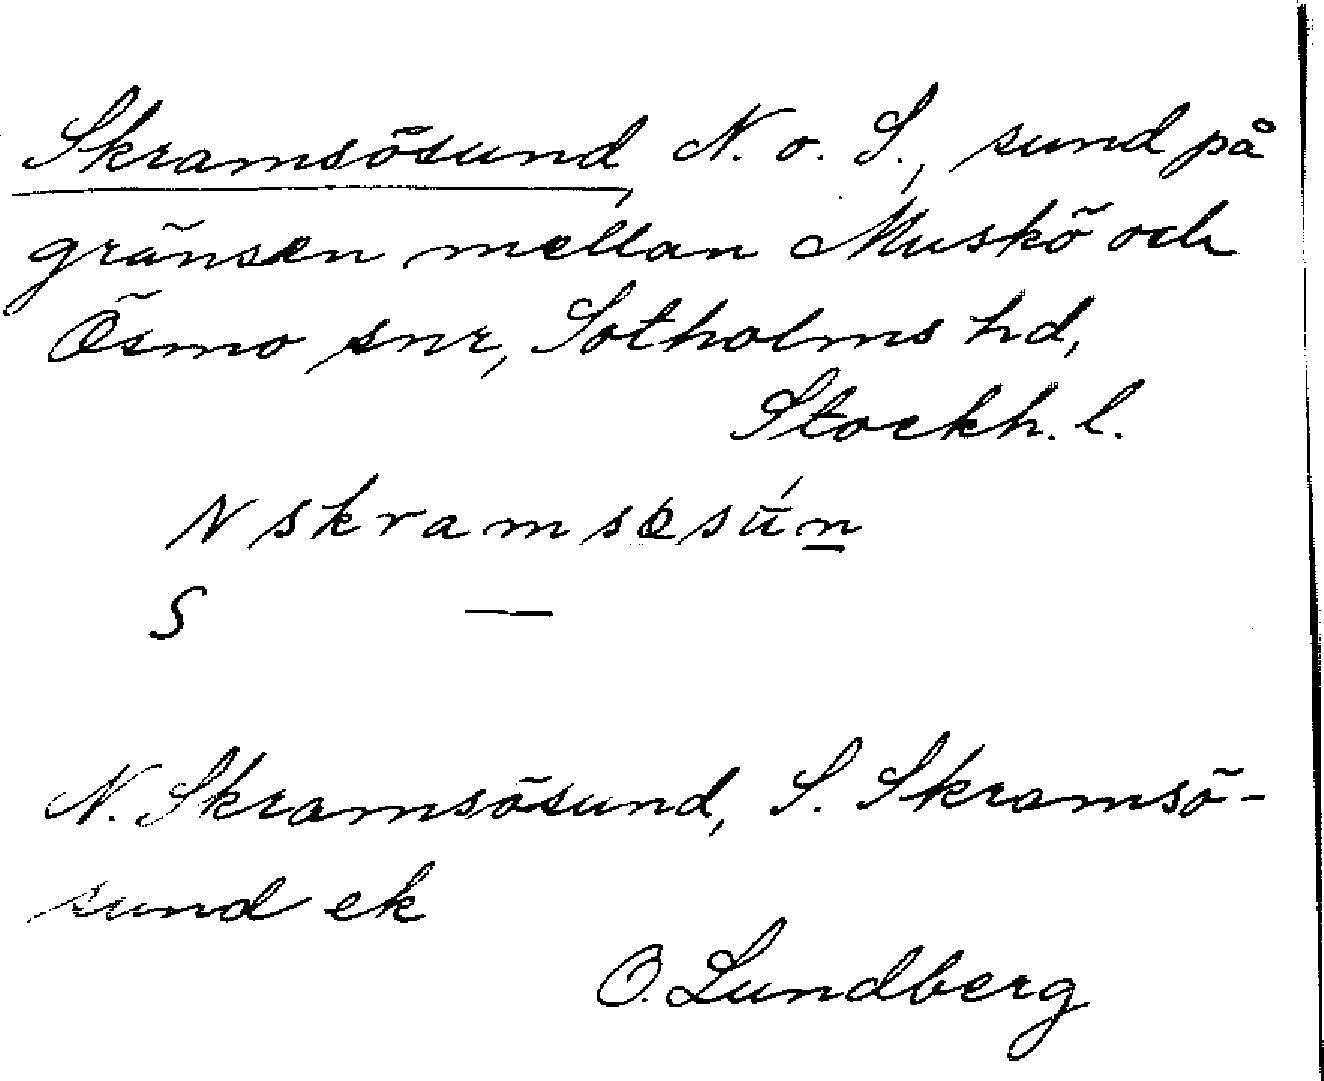 Skramsösund, N. o. S., sund på
gränsen mellan Muskö och
Ösmo snr, Sotholms hd,
Stockh. l.
N skramsøsún̲
S —
N. Skramsösund, S. Skramsö-
sund ek
O. Lundberg